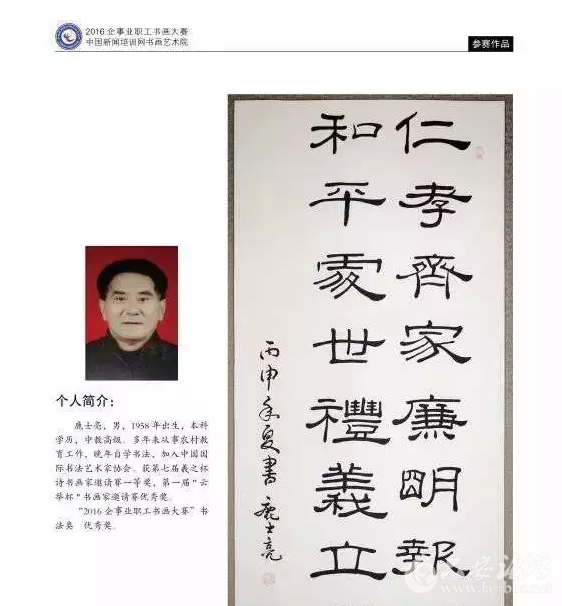 2016企事业职工书画大赛
中国新闻培训网书画艺术院
参赛作品
仁孝齐家廉明報
和平處世禮義立
丙申年夏書 鹿士亮
个人简介:
鹿士亮,男,1958年出生,本科
学历,中教高级。多年来从事农村教
育工作,晚年自学书法,加入中国国
际书法艺术家协会。获第七届羲之杯
诗书画家邀请赛一等奖,第一届“云
华杯”书画家邀请赛优秀奖。
“2016企事业职工书画大赛”书
法类 优秀奖。